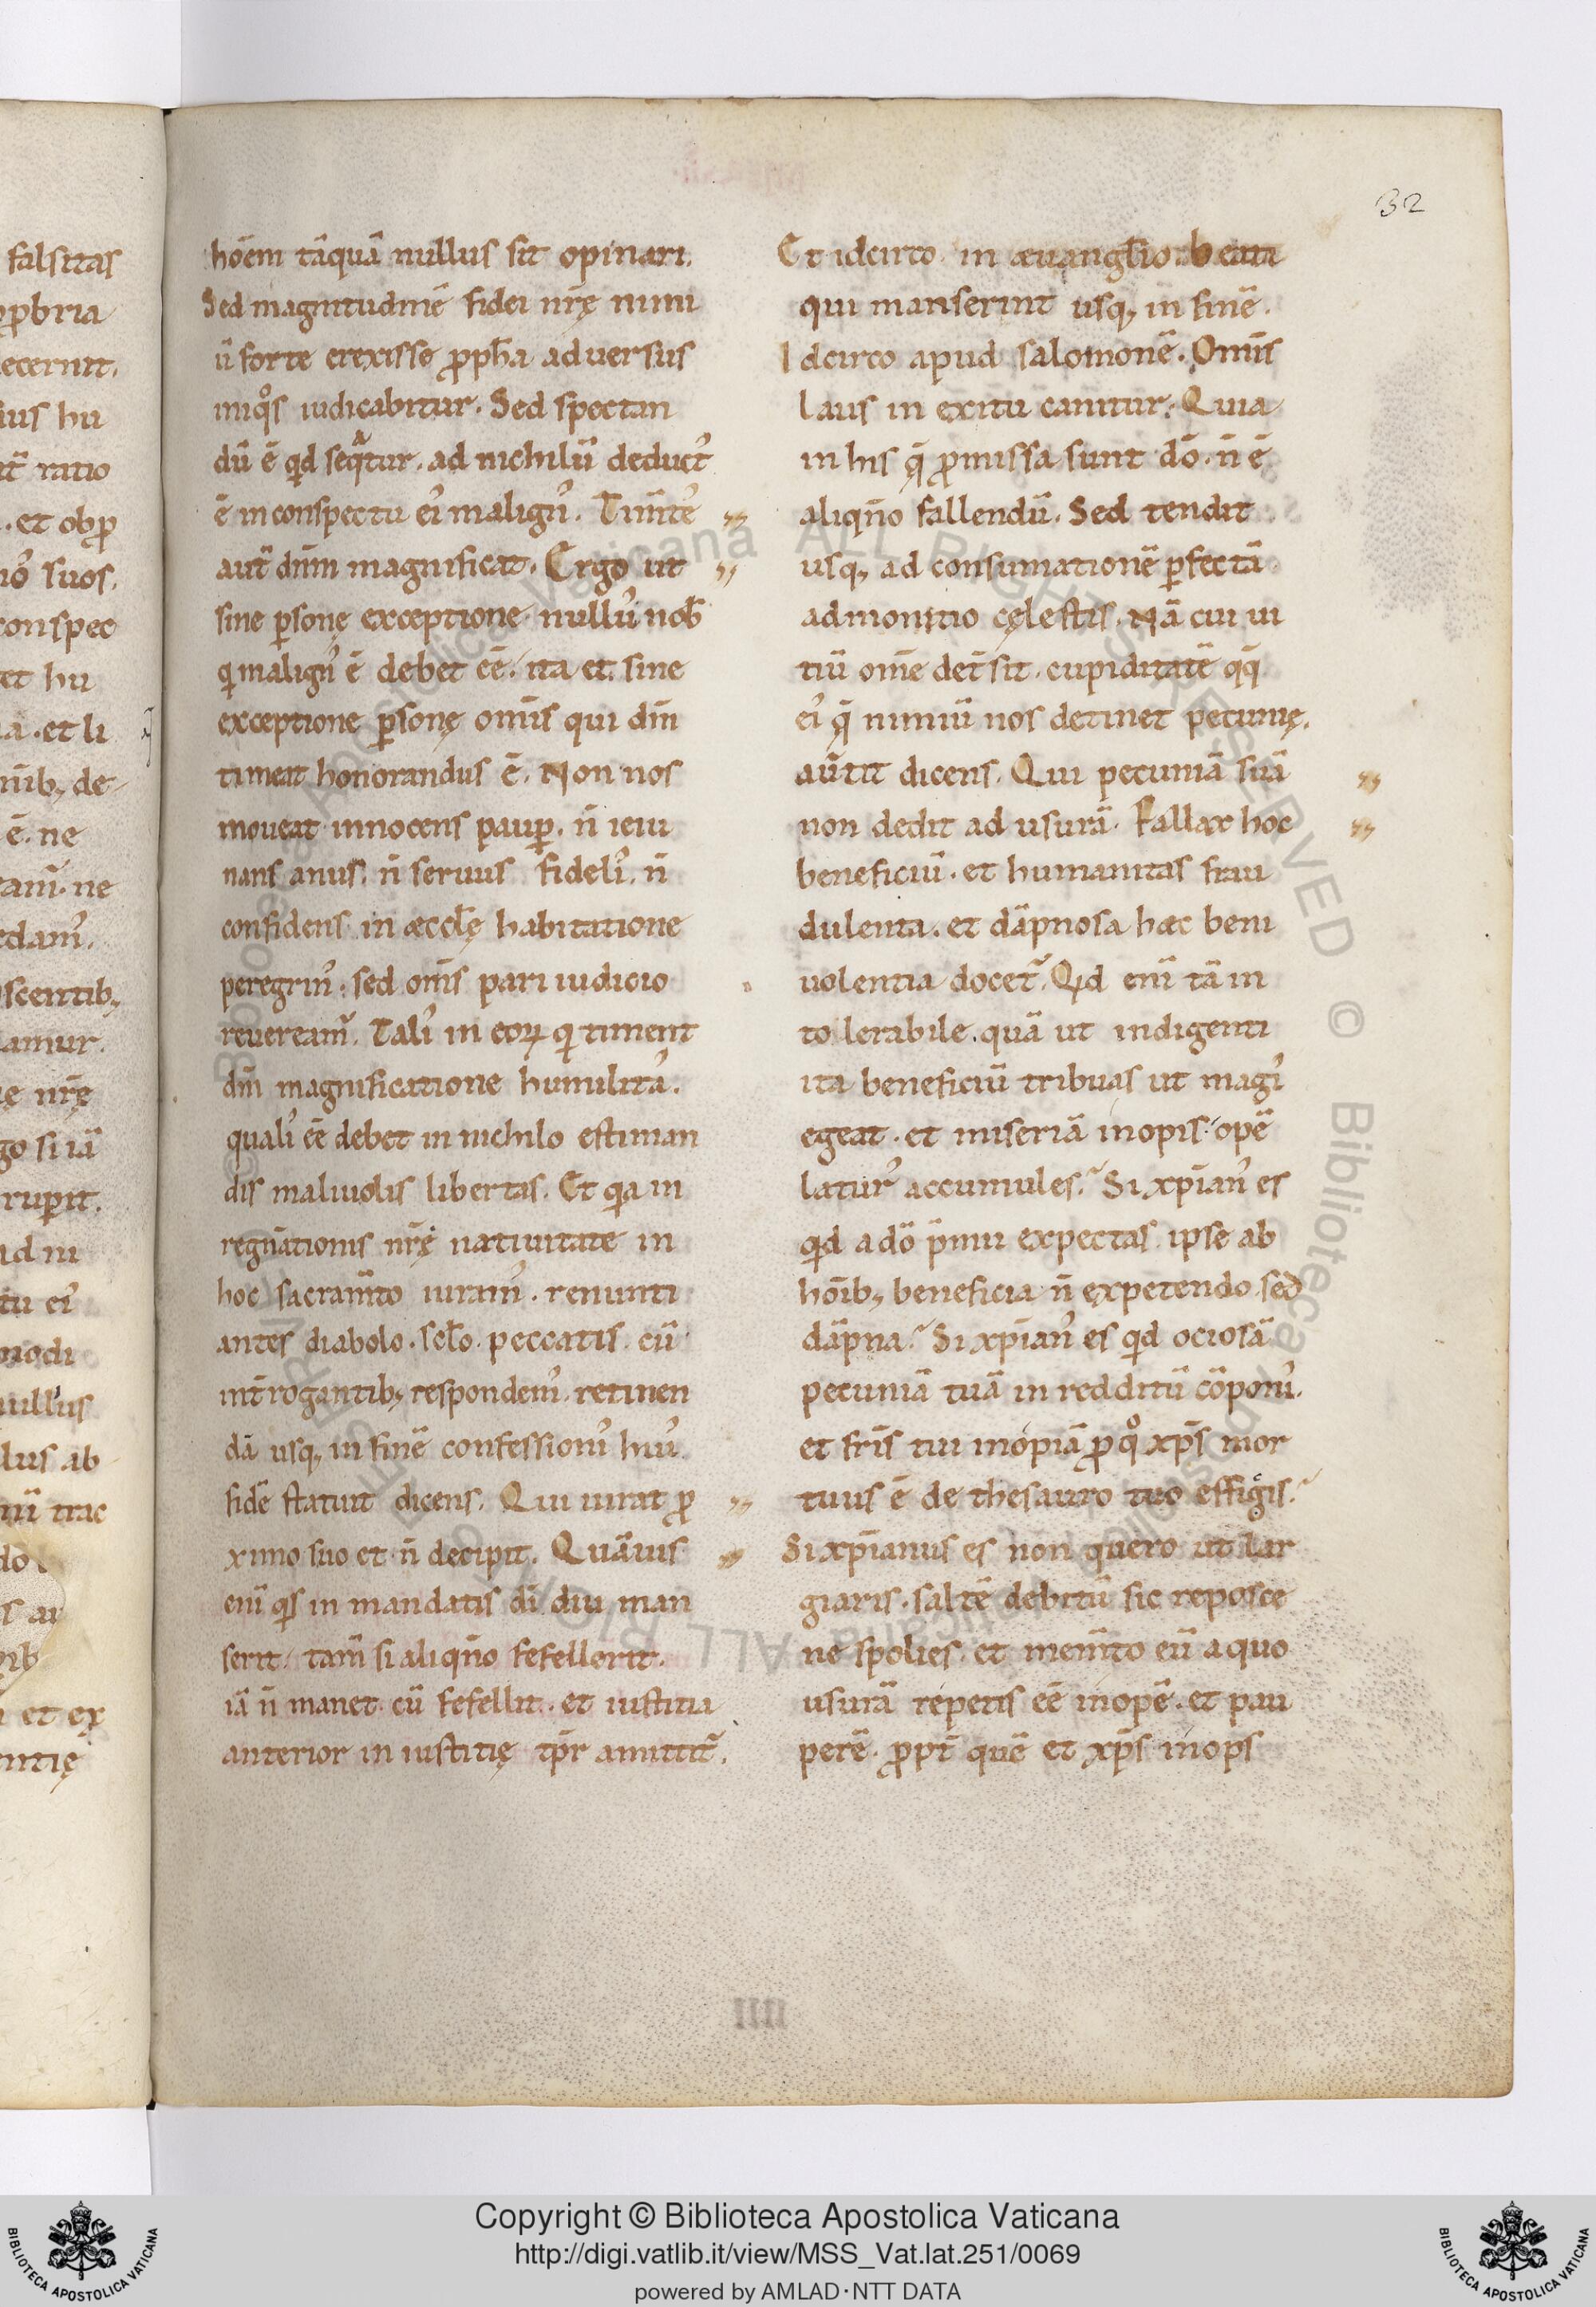 32
hōem tāquā nullus sit opinari.
Sed magnitudinē fidei nrę nimi
ū forte erexisse ꝓpħa aduersus
iniqͦs iudicabitur. Sed spectan
dū ē qͥd seqͣtur. ad nichilū deduct᾽
ē in conspectu ei᾽ malign᾽. Tim̄te᾽
aut̄ dnm̄ magnificat. Ergo ut
sine ꝑsonę exceptione nullu᾽ nob̄
qͥ malign᾽ ē debet eē. ita et sine
exceptione ꝑsonę om̄s qui dm̄
timeat honorandus ē. Non nos
moueat innocens pauꝑ. n̄ ieiu
nans anus. n̄ seruus fideli᾽. n̄
confidens in æccl̄ę habitatione
peregrin᾽. sed om̄s pari iudicio
reueream᾽. Tali᾽ in eoꝝ qͥ timent
dm̄ magnificatione humilita᾽.
quali᾽ eē debet in nichilo estiman
dis maliuolis libertas. Et qͥa in
regn̄ationis nrę natiuitate in
hoc sacram̄to iuram᾽. renunti
antes diabolo. scl̄o. peccatis. cū
int̄rogantibꝫ respondem᾽. retinen
dā usqꝫ in finē confessioni᾽ hui᾽
fidē statuit dicens. Qui iurat ꝓ
ximo suo et n̄ decipit. Quāuis
enī qͥs in mandatis dī diu man
serit. tam̄ si aliqn̄o fefellerit.
iā n̄ manet cū fefellit. et iustitia
anterior in iustitię tp̄r amittit᾽.
Et idcirco in æuangl̄io. beati
qui manserint usqꝫ in finē.
Idcirco apud salomonē. Omīs
laus in exitu canitur. Quia
in his q̄ ꝓmissa sunt dō. n̄ ē
aliqn̄o fallendū. Sed tendit
usqꝫ ad consumationē ꝑfectā
admonitio cęlestis. Nā cui ui
tiū omē det̄sit. cupiditatē qq̄
ei᾽ q̄ nimiū nos detinet pecunię.
aūtit dicens. Qui pecuniā suā
non dedit ad usurā. Fallax hoc
beneficiū. et humanitas frau
dulenta. et dāpnosa hæc beni
uolentia docet᾽. Qͥd enī tā in
tolerabile. quā ut indigenti
ita beneficiū tribuas ut magi᾽
egeat. et miseriā inopis opē
latur᾽ accumules? Si xp̄ian᾽ es
qͥd a dō p̄miu expectas. ipse ab
hōibꝫ beneficia n̄ expetendo sed
dāpna? Si xp̄ian᾽ es qͥd ociosā
pecuniā tuā in redditū cōponi᾽.
et fr̄is tui inopiā ꝓ qͦ xp̄s mor
tuus ē de thesauro tuo effigis?
Si xp̄ianus es non quero ut lar
giaris. saltē debitū sic reposce
ne spolies. et mem̄to eū a quo
usurā repetis eē inopē. et pau
perē. ꝓpt̄ quē et xp̄s inops
falsitas
ecernit.
ius hu
ratio
. et obꝓ
suos.
conspec
hu
. et li
nībꝫ de
ē. ne
ne
scentibꝫ
amur.
nrę
go si iā
rupit.
tu ei᾽
modi
nullus
lus ab
et ex
Copyright © Biblioteca Apostolica Vaticana
http://digi.vatlib.it/view/MSS_Vat.lat.251/0069
powered by AMLAD·NTT DATA
BIBLIOTECA APOSTOLICA VATICANA
BIBLIOTECA APOSTOLICA VATICANA